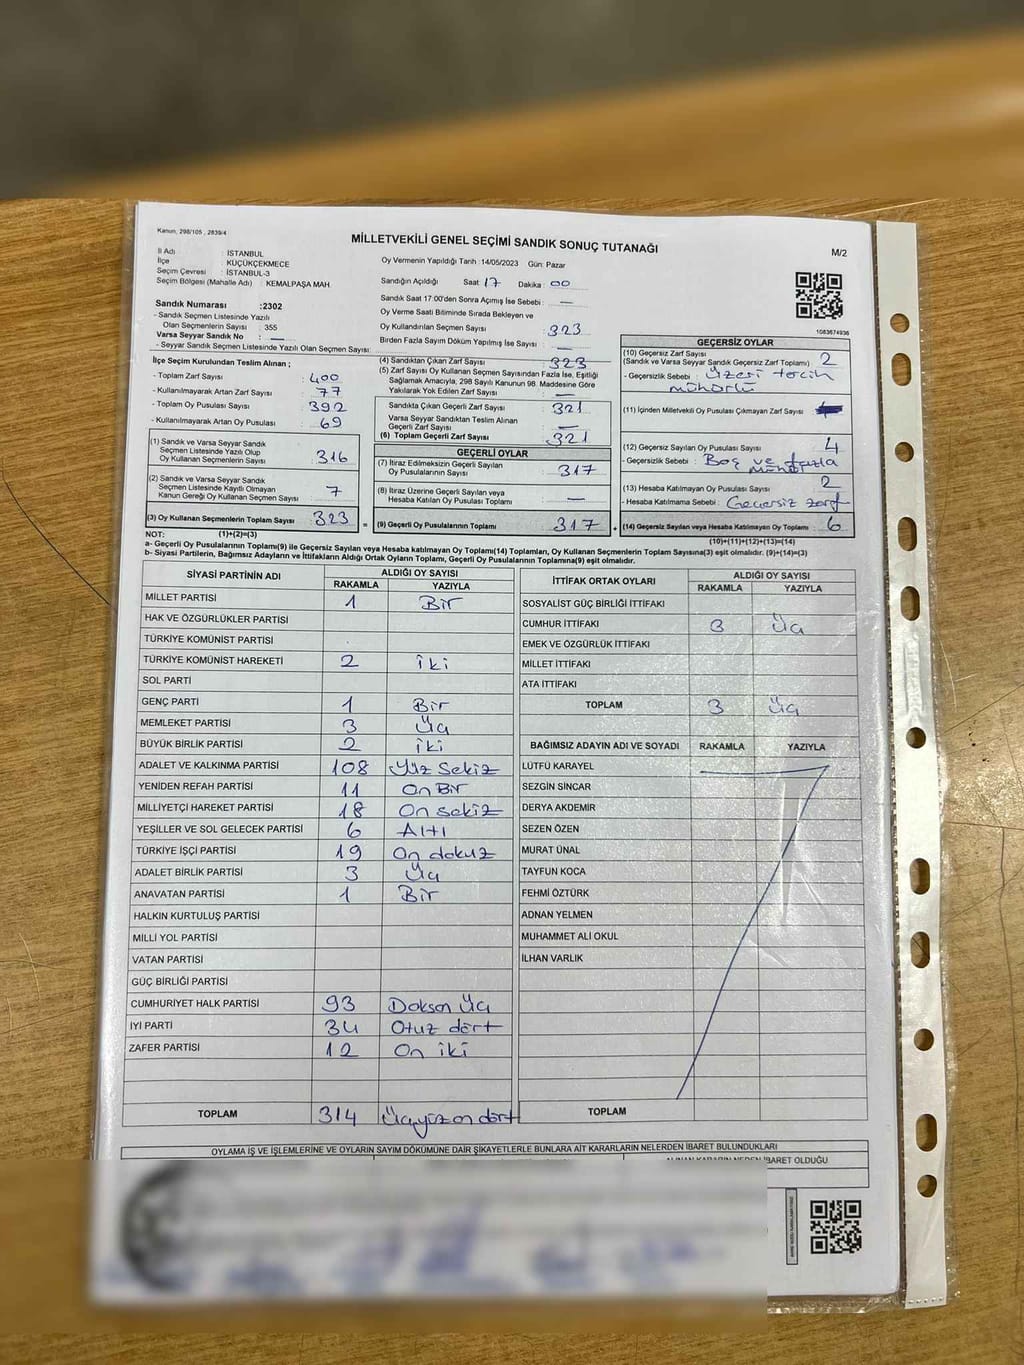 Kanun, 298/105 , 2839/4
MİLLETVEKİLİ GENEL SEÇİMİ SANDIK SONUÇ TUTANAĞI
M/2
İl Adı : İSTANBUL
İlçe : KÜÇÜKÇEKMECE
Seçim Çevresi : İSTANBUL-3
Seçim Bölgesi (Mahalle Adı) : KEMALPAŞA MAH.
Sandık Numarası :2302
- Sandık Seçmen Listesinde Yazılı
Olan Seçmenlerin Sayısı : 355
Varsa Seyyar Sandık No : —
- Seyyar Sandık Seçmen Listesinde Yazılı Olan Seçmen Sayısı:
Oy Vermenin Yapıldığı Tarih :14/05/2023 Gün: Pazar
Sandığın Açıldığı Saat : 17 Dakika : 00
Sandık Saat 17:00'den Sonra Açımış İse Sebebi : —
Oy Verme Saati Bitiminde Sırada Bekleyen ve
Oy Kullandırılan Seçmen Sayısı : 323
Birden Fazla Sayım Döküm Yapılmış İse Sayısı : —
1083674936
İlçe Seçim Kurulundan Teslim Alınan ;
- Toplam Zarf Sayısı : 400
- Kullanılmayarak Artan Zarf Sayısı : 77
- Toplam Oy Pusulası Sayısı : 392
- Kullanılmayarak Artan Oy Pusulası : 69
(1) Sandık ve Varsa Seyyar Sandık
Seçmen Listesinde Yazılı Olup
Oy Kullanan Seçmenlerin Sayısı : 316
(2) Sandık ve Varsa Seyyar Sandık
Seçmen Listesinde Kayıtlı Olmayan
Kanun Gereği Oy Kullanan Seçmen Sayısı : 7
(3) Oy Kullanan Seçmenlerin Toplam Sayısı : 323
(4) Sandıktan Çıkan Zarf Sayısı : 323
(5) Zarf Sayısı Oy Kullanan Seçmen Sayısından Fazla İse, Eşitliği
Sağlamak Amacıyla, 298 Sayılı Kanunun 98. Maddesine Göre
Yakılarak Yok Edilen Zarf Sayısı : —
Sandıkta Çıkan Geçerli Zarf Sayısı : 321
Varsa Seyyar Sandıktan Teslim Alınan
Geçerli Zarf Sayısı : —
(6) Toplam Geçerli Zarf Sayısı : 321
GEÇERLİ OYLAR
(7) İtiraz Edilmeksizin Geçerli Sayılan
Oy Pusulalarının Sayısı : 317
(8) İtiraz Üzerine Geçerli Sayılan veya
Hesaba Katılan Oy Pusulası Toplamı : —
= (9) Geçerli Oy Pusulalarının Toplamı : 317 +
GEÇERSİZ OYLAR
(10) Geçersiz Zarf Sayısı
(Sandık ve Varsa Seyyar Sandık Geçersiz Zarf Toplamı) : 2
- Geçersizlik Sebebi : Üzeri tercih
mühürlü
(11) İçinden Milletvekili Oy Pusulası Çıkmayan Zarf Sayısı :
(12) Geçersiz Sayılan Oy Pusulası Sayısı : 4
- Geçersizlik Sebebi : Boş ve fazla
mühür
(13) Hesaba Katılmayan Oy Pusulası Sayısı : 2
- Hesaba Katılmama Sebebi : Geçersiz zarf
(14) Geçersiz Sayılan veya Hesaba Katılmayan Oy Toplamı : 6
NOT: (1)+(2)=(3)
(10)+(11)+(12)+(13)=(14)
a- Geçerli Oy Pusulalarının Toplamı(9) ile Geçersiz Sayılan veya Hesaba katılmayan Oy Toplamı(14) Toplamları, Oy Kullanan Seçmenlerin Toplam Sayısına(3) eşit olmalıdır. (9)+(14)=(3)
b- Siyasi Partilerin, Bağımsız Adayların ve İttifakların Aldığı Ortak Oyların Toplamı, Geçerli Oy Pusulalarının Toplamına(9) eşit olmalıdır.
SİYASİ PARTİNİN ADI ALDIĞI OY SAYISI
RAKAMLA YAZIYLA
MİLLET PARTİSİ 1 Bir
HAK VE ÖZGÜRLÜKLER PARTİSİ
TÜRKİYE KOMÜNİST PARTİSİ
TÜRKİYE KOMÜNİST HAREKETİ 2 İki
SOL PARTİ
GENÇ PARTİ 1 Bir
MEMLEKET PARTİSİ 3 Üç
BÜYÜK BİRLİK PARTİSİ 2 İki
ADALET VE KALKINMA PARTİSİ 108 Yüz Sekiz
YENİDEN REFAH PARTİSİ 11 On Bir
MİLLİYETÇİ HAREKET PARTİSİ 18 On sekiz
YEŞİLLER VE SOL GELECEK PARTİSİ 6 Altı
TÜRKİYE İŞÇİ PARTİSİ 19 On dokuz
ADALET BİRLİK PARTİSİ 3 Üç
ANAVATAN PARTİSİ 1 Bir
HALKIN KURTULUŞ PARTİSİ
MİLLİ YOL PARTİSİ
VATAN PARTİSİ
GÜÇ BİRLİĞİ PARTİSİ
CUMHURİYET HALK PARTİSİ 93 Doksan Üç
İYİ PARTİ 34 Otuz dört
ZAFER PARTİSİ 12 On iki
TOPLAM 314 Üçyüz on dört
İTTİFAK ORTAK OYLARI ALDIĞI OY SAYISI
RAKAMLA YAZIYLA
SOSYALİST GÜÇ BİRLİĞİ İTTİFAKI
CUMHUR İTTİFAKI 3 Üç
EMEK VE ÖZGÜRLÜK İTTİFAKI
MİLLET İTTİFAKI
ATA İTTİFAKI
TOPLAM 3 Üç
BAĞIMSIZ ADAYIN ADI VE SOYADI RAKAMLA YAZIYLA
LÜTFÜ KARAYEL
SEZGİN SİNCAR
DERYA AKDEMİR
SEZEN ÖZEN
MURAT ÜNAL
TAYFUN KOCA
FEHMİ ÖZTÜRK
ADNAN YELMEN
MUHAMMET ALİ OKUL
İLHAN VARLIK
TOPLAM
OYLAMA İŞ VE İŞLEMLERİNE VE OYLARIN SAYIM DÖKÜMÜNE DAİR ŞİKAYETLERLE BUNLARA AİT KARARLARIN NELERDEN İBARET BULUNDUKLARI
ALINAN KARARIN NEDEN İBARET OLDUĞU